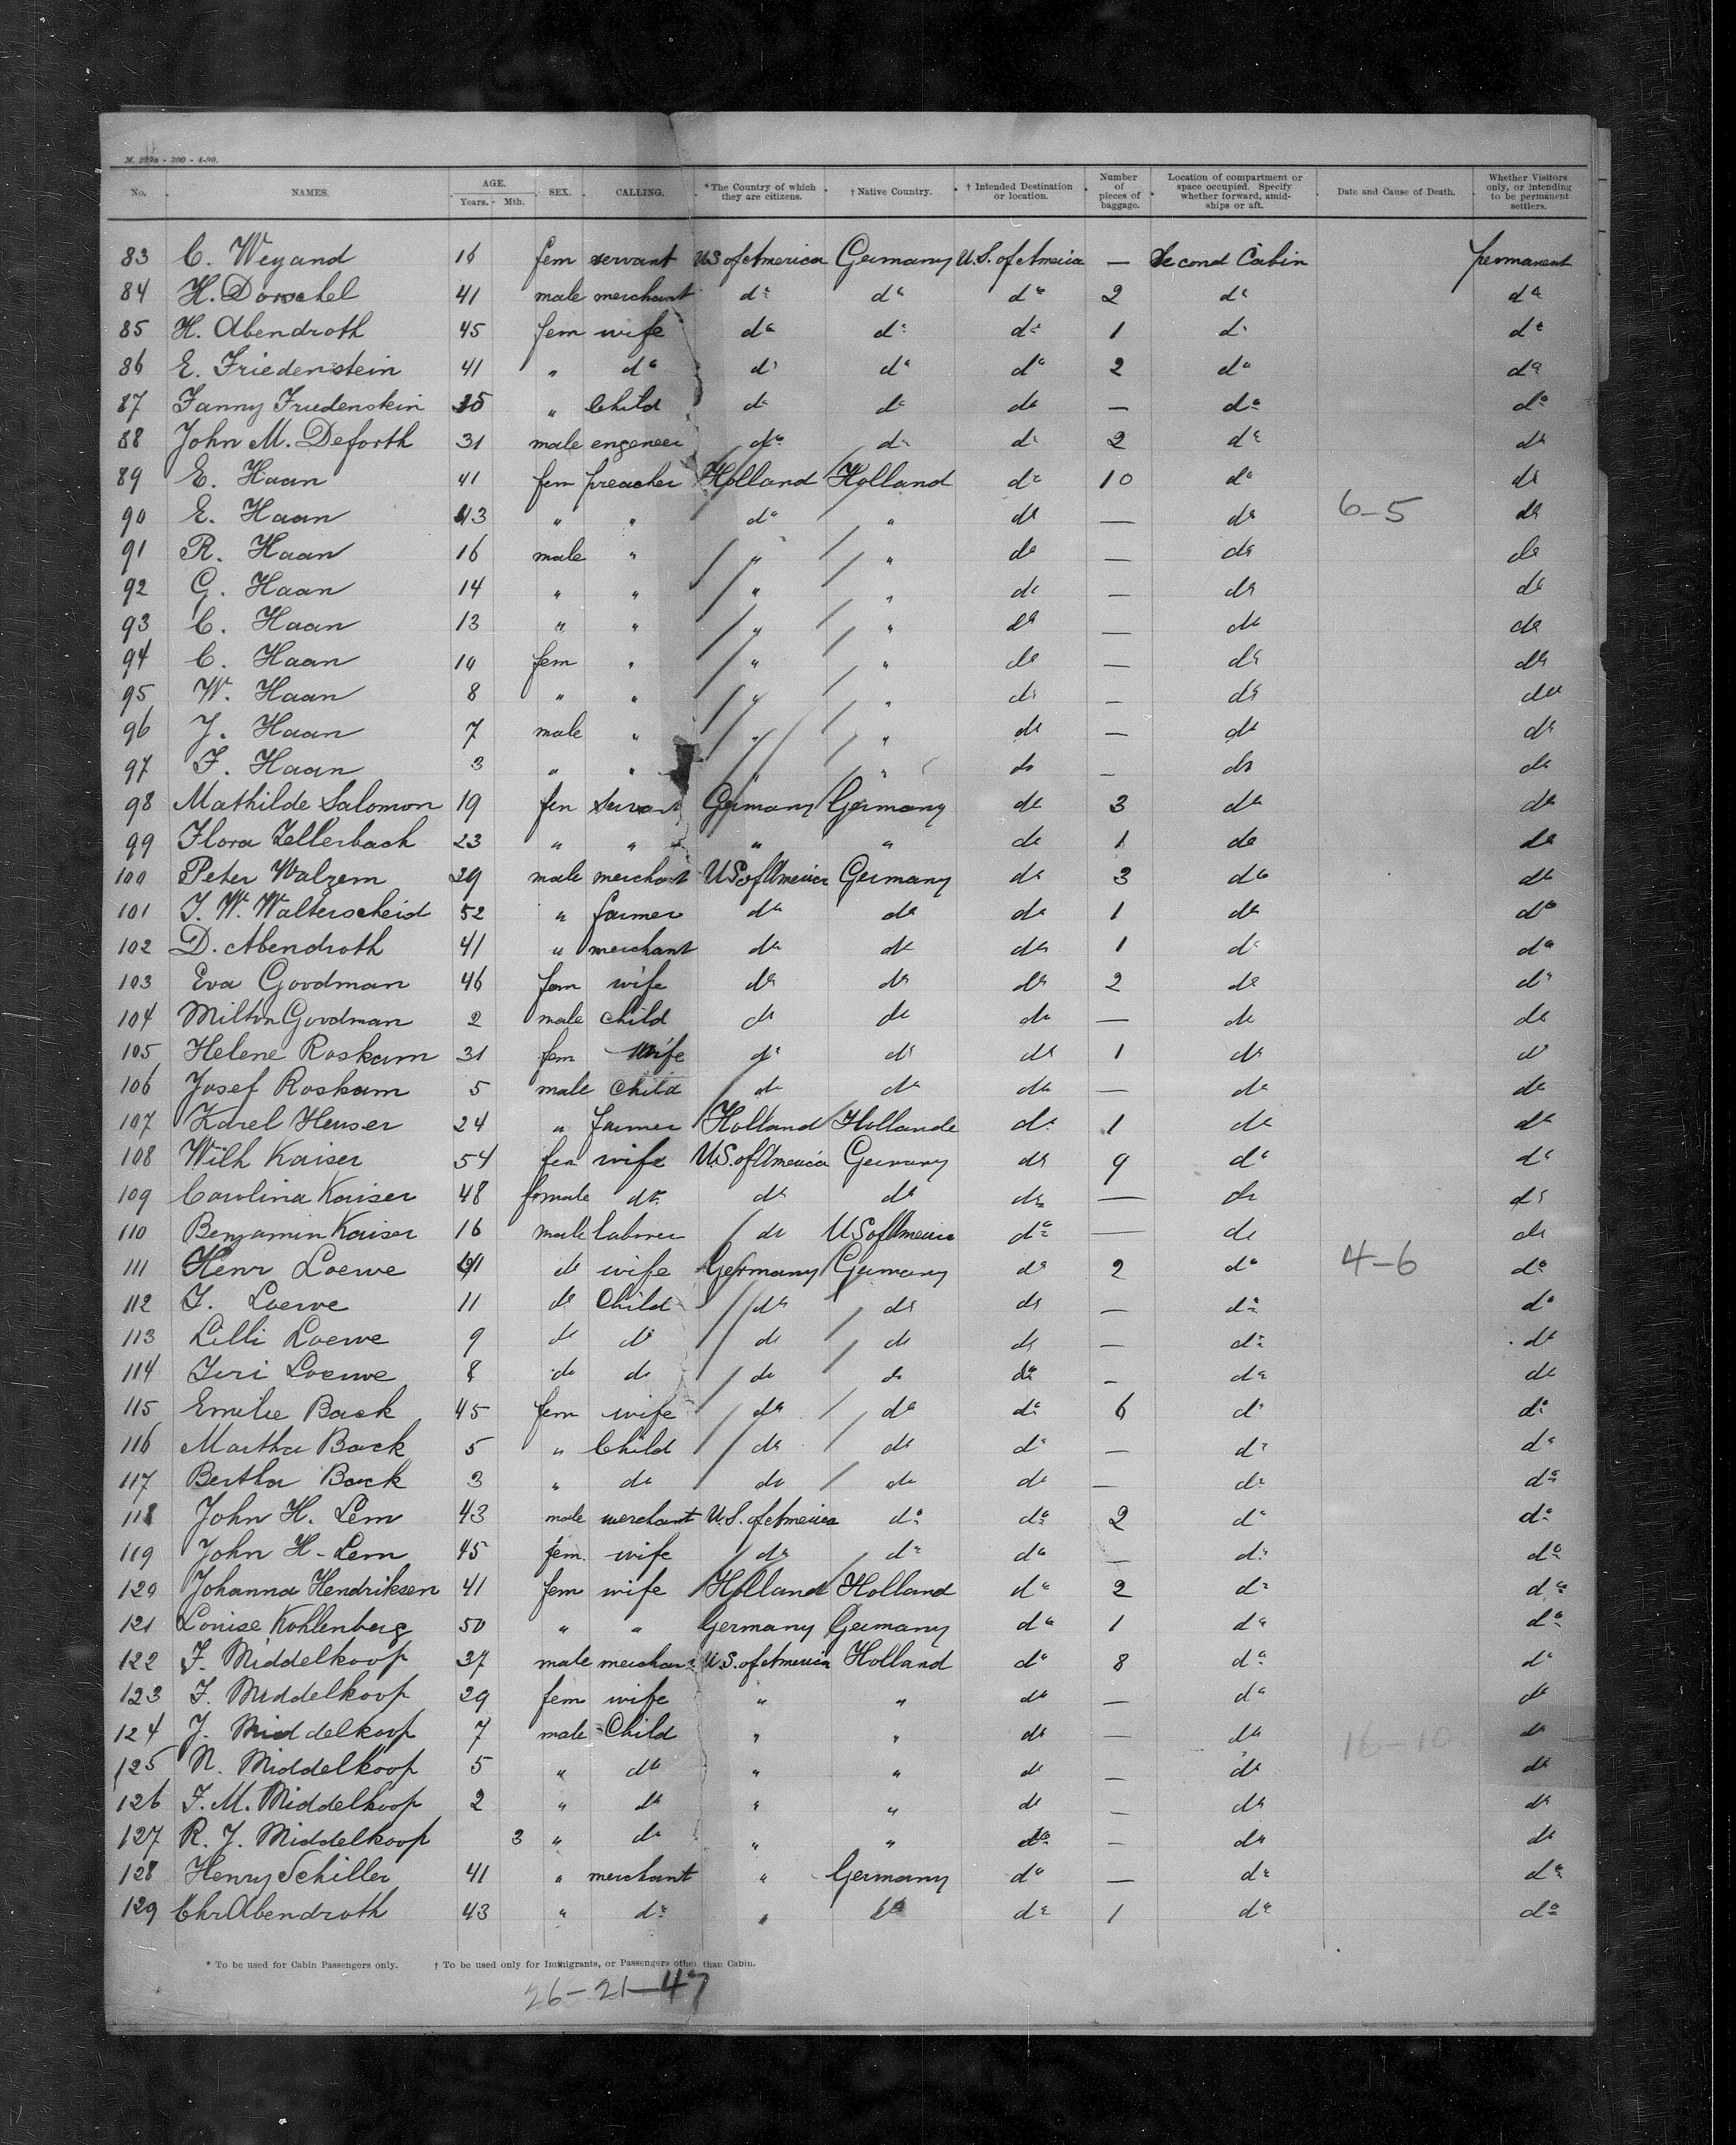 M. 229a - 300 - 4-90.
No. NAMES. AGE. Years. Mth. SEX. CALLING. *The Country of which they are citizens. † Native Country. † Intended Destination or location. Number of pieces of baggage. Location of compartment or space occupied. Specify whether forward, amidships or aft. Date and Cause of Death. Whether Visitors only, or intending to be permanent settlers.
83 C. Weyand 16 fem servant U.S of America Germany U.S. of America — Second Cabin permanent
84 H. Dorschel 41 male merchant do do do 2 do do
85 H. Abendroth 45 fem wife do do do 1 do do
86 E. Friedenstein 41 " do do do do 2 do do
87 Fanny Friedenstein " Child do do do — do do
88 John M. Deforth 31 male engeneer do do do 2 do do
89 E. Haan 41 fem preacher Holland Holland do 10 do do
90 E. Haan 43 " " do " do — do 6-5 do
91 R. Haan 16 male " " " do — do do
92 G. Haan 14 " " " " do — do do
93 C. Haan 13 " " " " do — do do
94 C. Haan 10 fem " " " do — do do
95 W. Haan 8 " " " " do — do do
96 J. Haan 7 male " " " do — do do
97 F. Haan 3 " " " " do — do do
98 Mathilde Salomon 19 fem servant Germany Germany do 3 do do
99 Flora Zellerbach 23 " " " " do 1 do do
100 Peter Walzem 29 male merchant US of America Germany do 3 do do
101 J. W. Walterscheid 52 " farmer do do do 1 do do
102 D. Abendroth 41 " merchant do do do 1 do do
103 Eva Goodman 46 fem wife do do do 2 do do
104 Milton Goodman 2 male child do do do — do do
105 Helene Roskam 31 fem wife do do do 1 do do
106 Josef Roskam 5 male child do do do — do do
107 Karel Heuser 24 " farmer Holland Hollande do 1 do do
108 Wilh Kaiser 54 fem wife U.S. of America Germany do 9 do do
109 Carolina Kaiser 48 female do do do do — do do
110 Benjamin Kaiser 16 male laborer do US of America do — do do
111 Henr Loewe 41 do wife Germany Germany do 2 do 4-6 do
112 J. Loewe 11 do Child do do do — do do
113 Lilli Loewe 9 do do do do do — do do
114 Loewe 8 do do do do do — do do
115 Emilie Back 45 fem wife do do do 6 do do
116 Martha Back 5 " Child do do do — do do
117 Bertha Back 3 " do do do do — do do
118 John H. Lem 43 male merchant U.S. of America do do 2 do do
119 John H. Lem 45 fem. wife do do do — do do
120 Johanna Hendriksen 41 fem wife Holland Holland do 2 do do
121 Louise Kohlenberg 50 " " Germany Germany do 1 do do
122 J. Middelkoop 37 male merchant U.S. of America Holland do 8 do do
123 J. Middelkoop 29 fem wife " " do — do do
124 J. Middelkoop 7 male Child " " do — do 16-10 do
125 N. Middelkoop 5 " do " " do — do do
126 J. M. Middelkoop 2 " do " " do — do do
127 R. J. Middelkoop 3 " do " " do — do do
128 Henry Schiller 41 " merchant " Germany do — do do
129 Chr Abendroth 43 " do " do do 1 do do
* To be used for Cabin Passengers only. † To be used only for Immigrants, or Passengers other than Cabin.
26-21-47